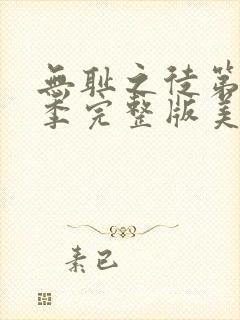 無耻之徒第
季完整版美
素已